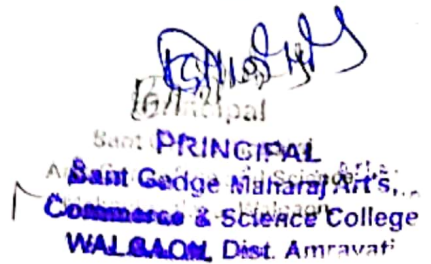 Principal
PRINCIPAL
Sant Gadge Maharaj Art's,
Commerce & Science College
WALGAON, Dist. Amravati